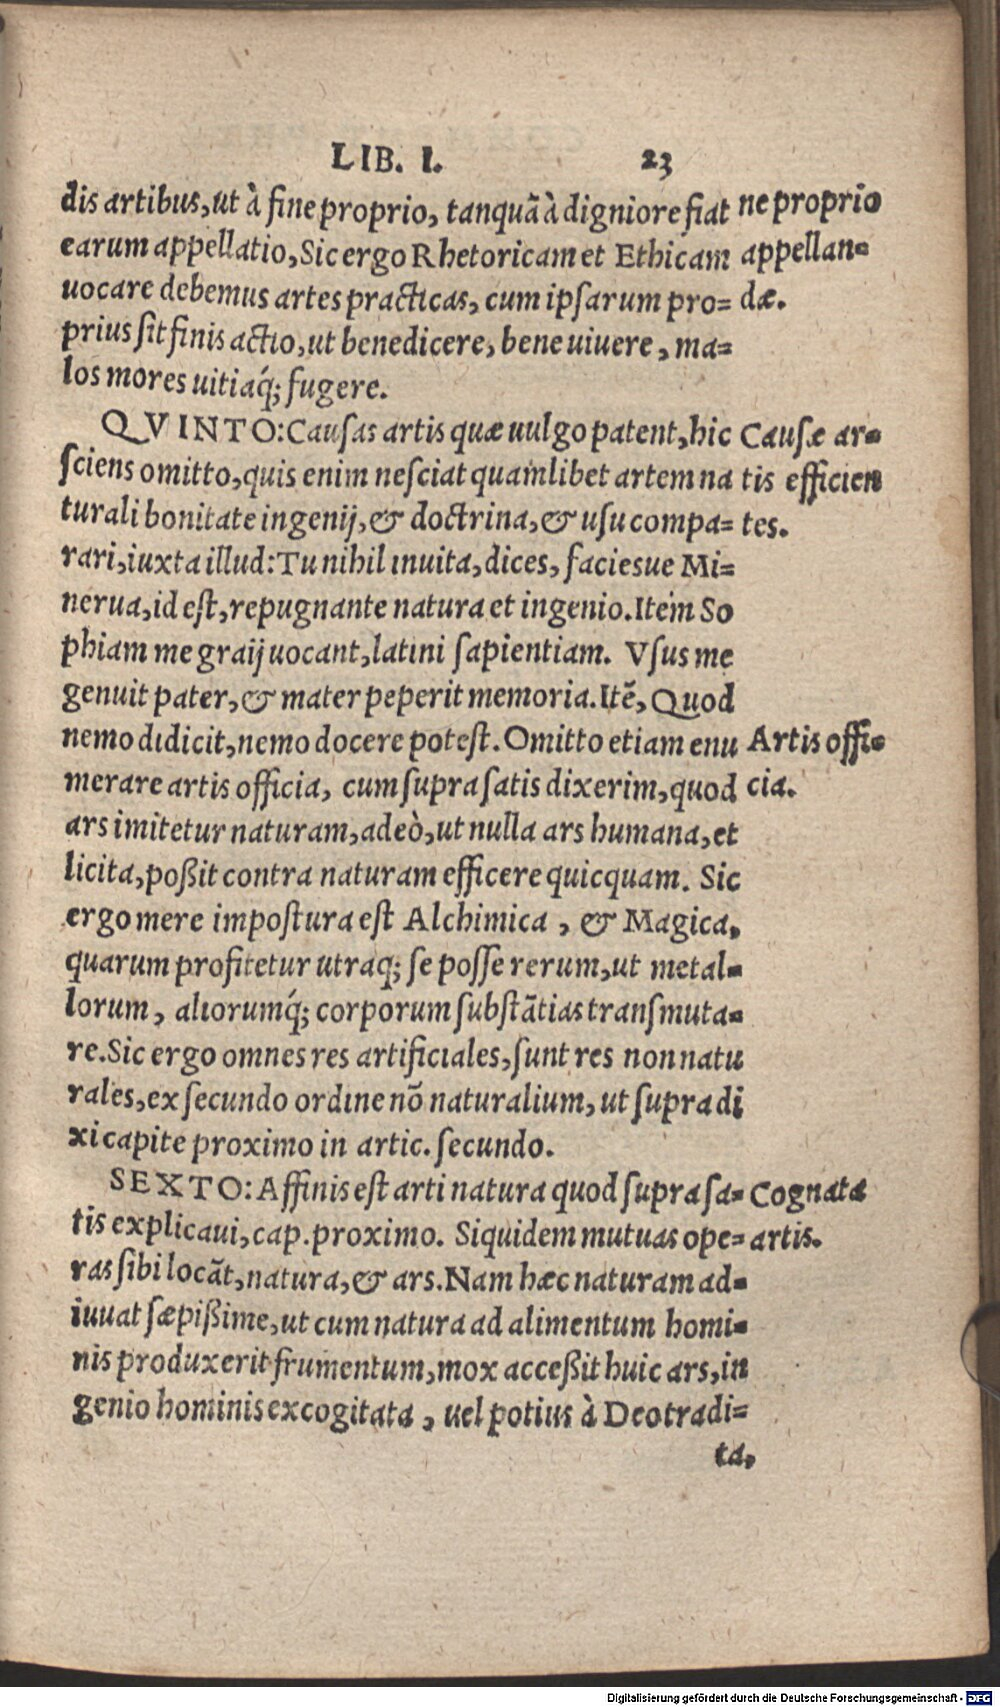 LIB. I. 23
dis artibus, ut à fine proprio, tanquã à digniore fiat
earum appellatio, Sic ergo Rhetoricam et Ethicam
uocare debemus artes practicas, cum ipsarum pro=
prius sit finis actio, ut benedicere, bene uiuere, ma=
los mores uitiaq́; fugere.
ne proprio
appellan=
dæ.
QVINTO: Causas artis quæ uulgo patent, hic
sciens omitto, quis enim nesciat quamlibet artem na
turali bonitate ingenij, & doctrina, & usu compa=
rari, iuxta illud: Tu nihil inuita, dices, faciesue Mi=
nerua, id est, repugnante natura et ingenio. Item So
phiam me graij uocant, latini sapientiam. Vsus me
genuit pater, & mater peperit memoria. Itē, Quod
nemo didicit, nemo docere potest. Omitto etiam enu
merare artis officia, cum supra satis dixerim, quod
ars imitetur naturam, adeò, ut nulla ars humana, et
licita, poßit contra naturam efficere quicquam. Sic
ergo mere impostura est Alchimica, & Magica,
quarum profitetur utraq; se posse rerum, ut metal=
lorum, aliorumq́; corporum substãtias transmuta=
re. Sic ergo omnes res artificiales, sunt res non natu
rales, ex secundo ordine nõ naturalium, ut supra di
xi capite proximo in artic. secundo.
Causæ ar=
tis efficien
tes.
Artis offi=
cia.
SEXTO: Affinis est arti natura quod supra sa=
tis explicaui, cap. proximo. Siquidem mutuas ope=
ras sibi locãt, natura, & ars. Nam hæc naturam ad=
iuuat sæpißime, ut cum natura ad alimentum homi=
nis produxerit frumentum, mox acceßit huic ars, in
genio hominis excogitata, uel potius à Deo tradi=
ta,
Cognata
artis.
Digitalisierung gefördert durch die Deutsche Forschungsgemeinschaft - DFG